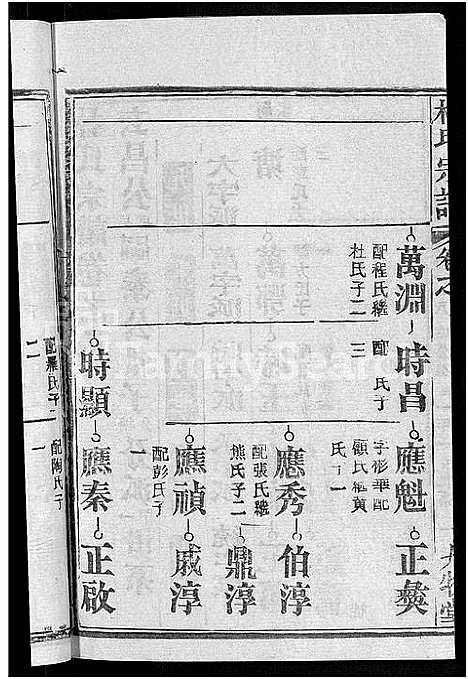 氏宗譜
萬淵
配程氏繼
杜氏子二
時昌
配 氏子
三
應魁
字彬華配
顧氏繼黃
氏子一
正彝
應秀
配張氏繼
熊氏子二
伯淳
鼎淳
應禎
配彭氏子
一
戚淳
時顯
應秦
正啟
配陶氏子
一